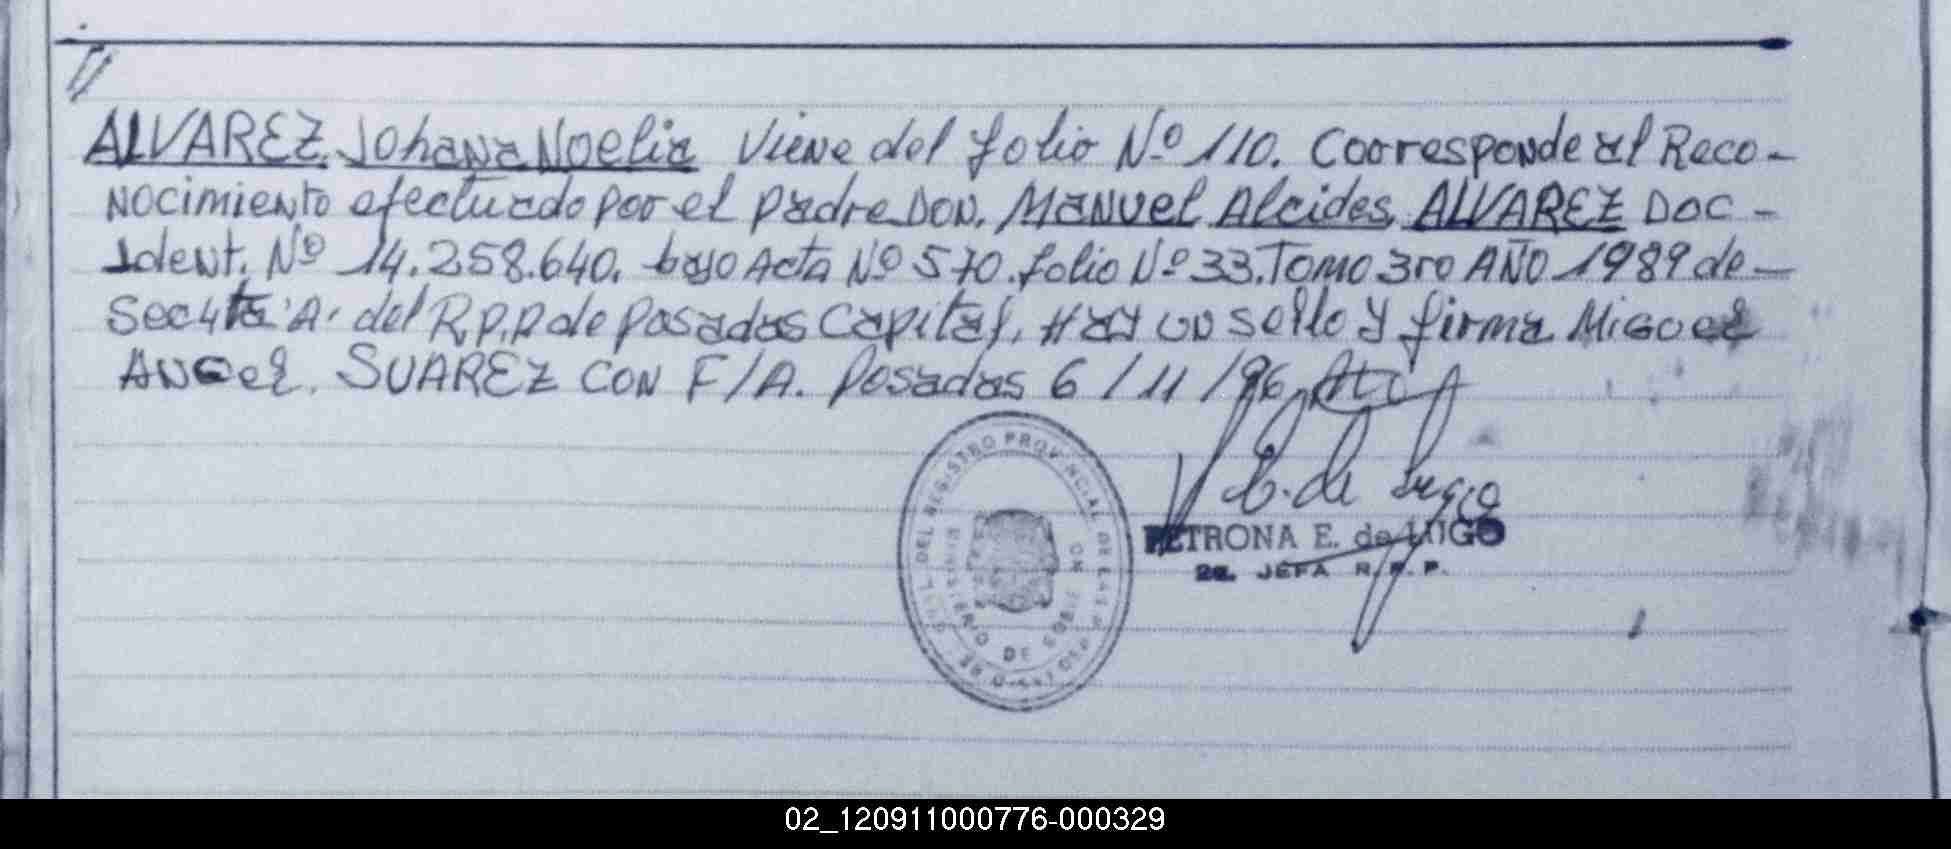 //
ALVAREZ Johana Noelia Viene del folio Nº 110. Corresponde al Reco-
nocimiento efectuado por el padre Don. Manuel Alcides ALVAREZ Doc-
Ident. Nº 14.258.640. bajo Acta Nº 570. folio Nº 33. Tomo 3ro AÑO 1989 de-
Sec4ta "A" del R.P.P de Posadas Capital. Hay un sello y firma Miguel
Angel. SUAREZ CON F/A. Posadas 6/11/96
E. de Lugo
PETRONA E. de LUGO
2a. JEFA R.P.P.
DEL REGISTRO PROVINCIAL DE LAS
MINISTERIO DE GOBIERNO
02_120911000776-000329